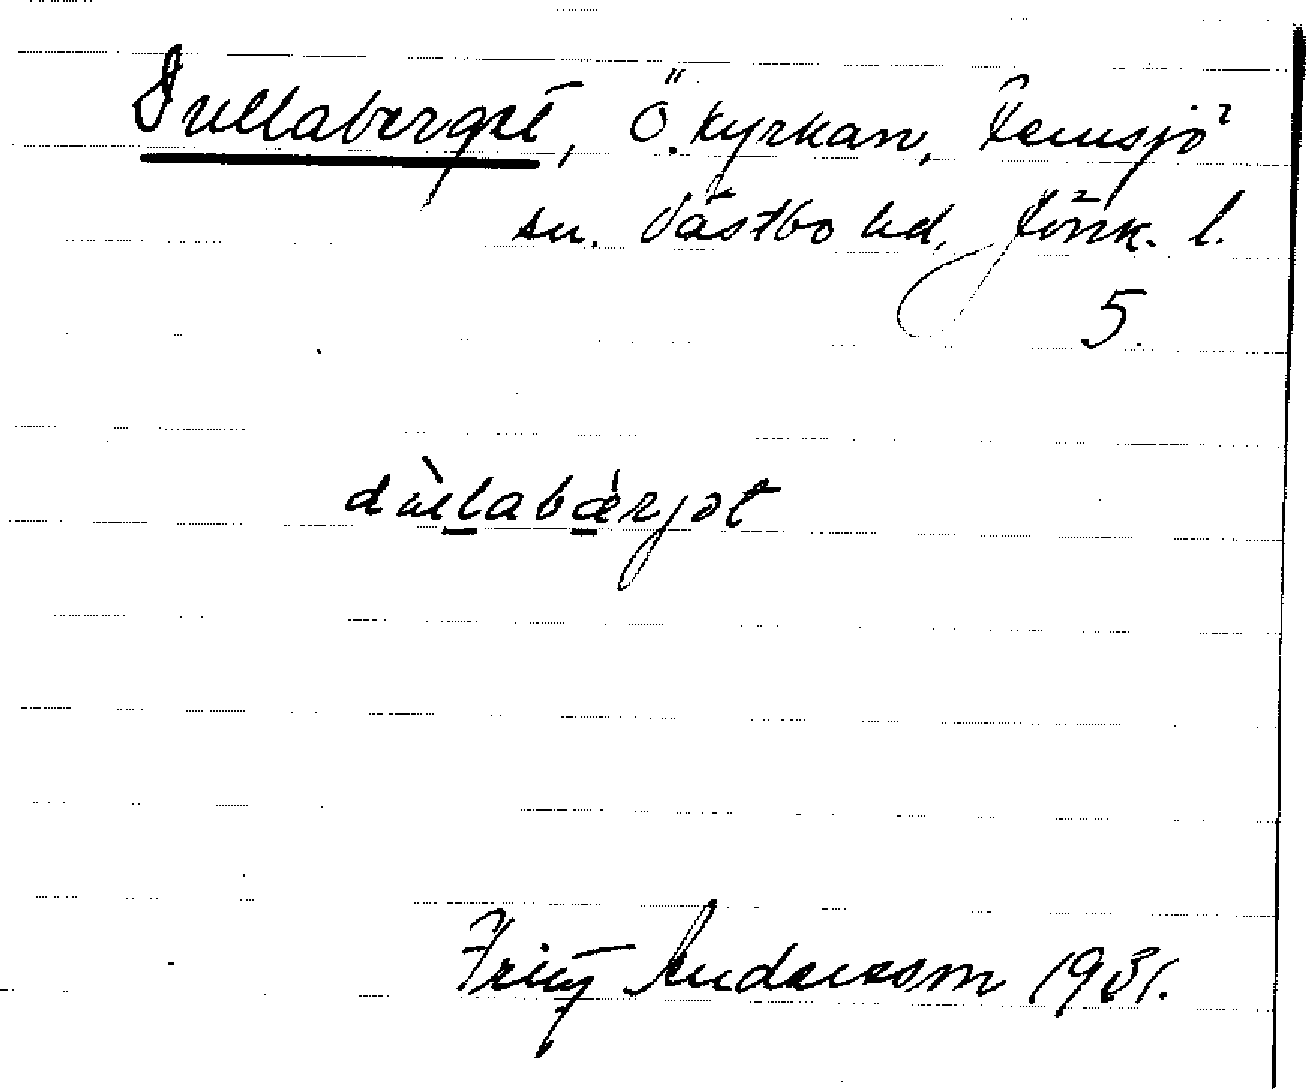 Dullaberget, Ö. kyrkan, Femsjö
sn. Västbo hd, Jönk. l.
5.
dùllabærjət
Fritz Andersson 1931.